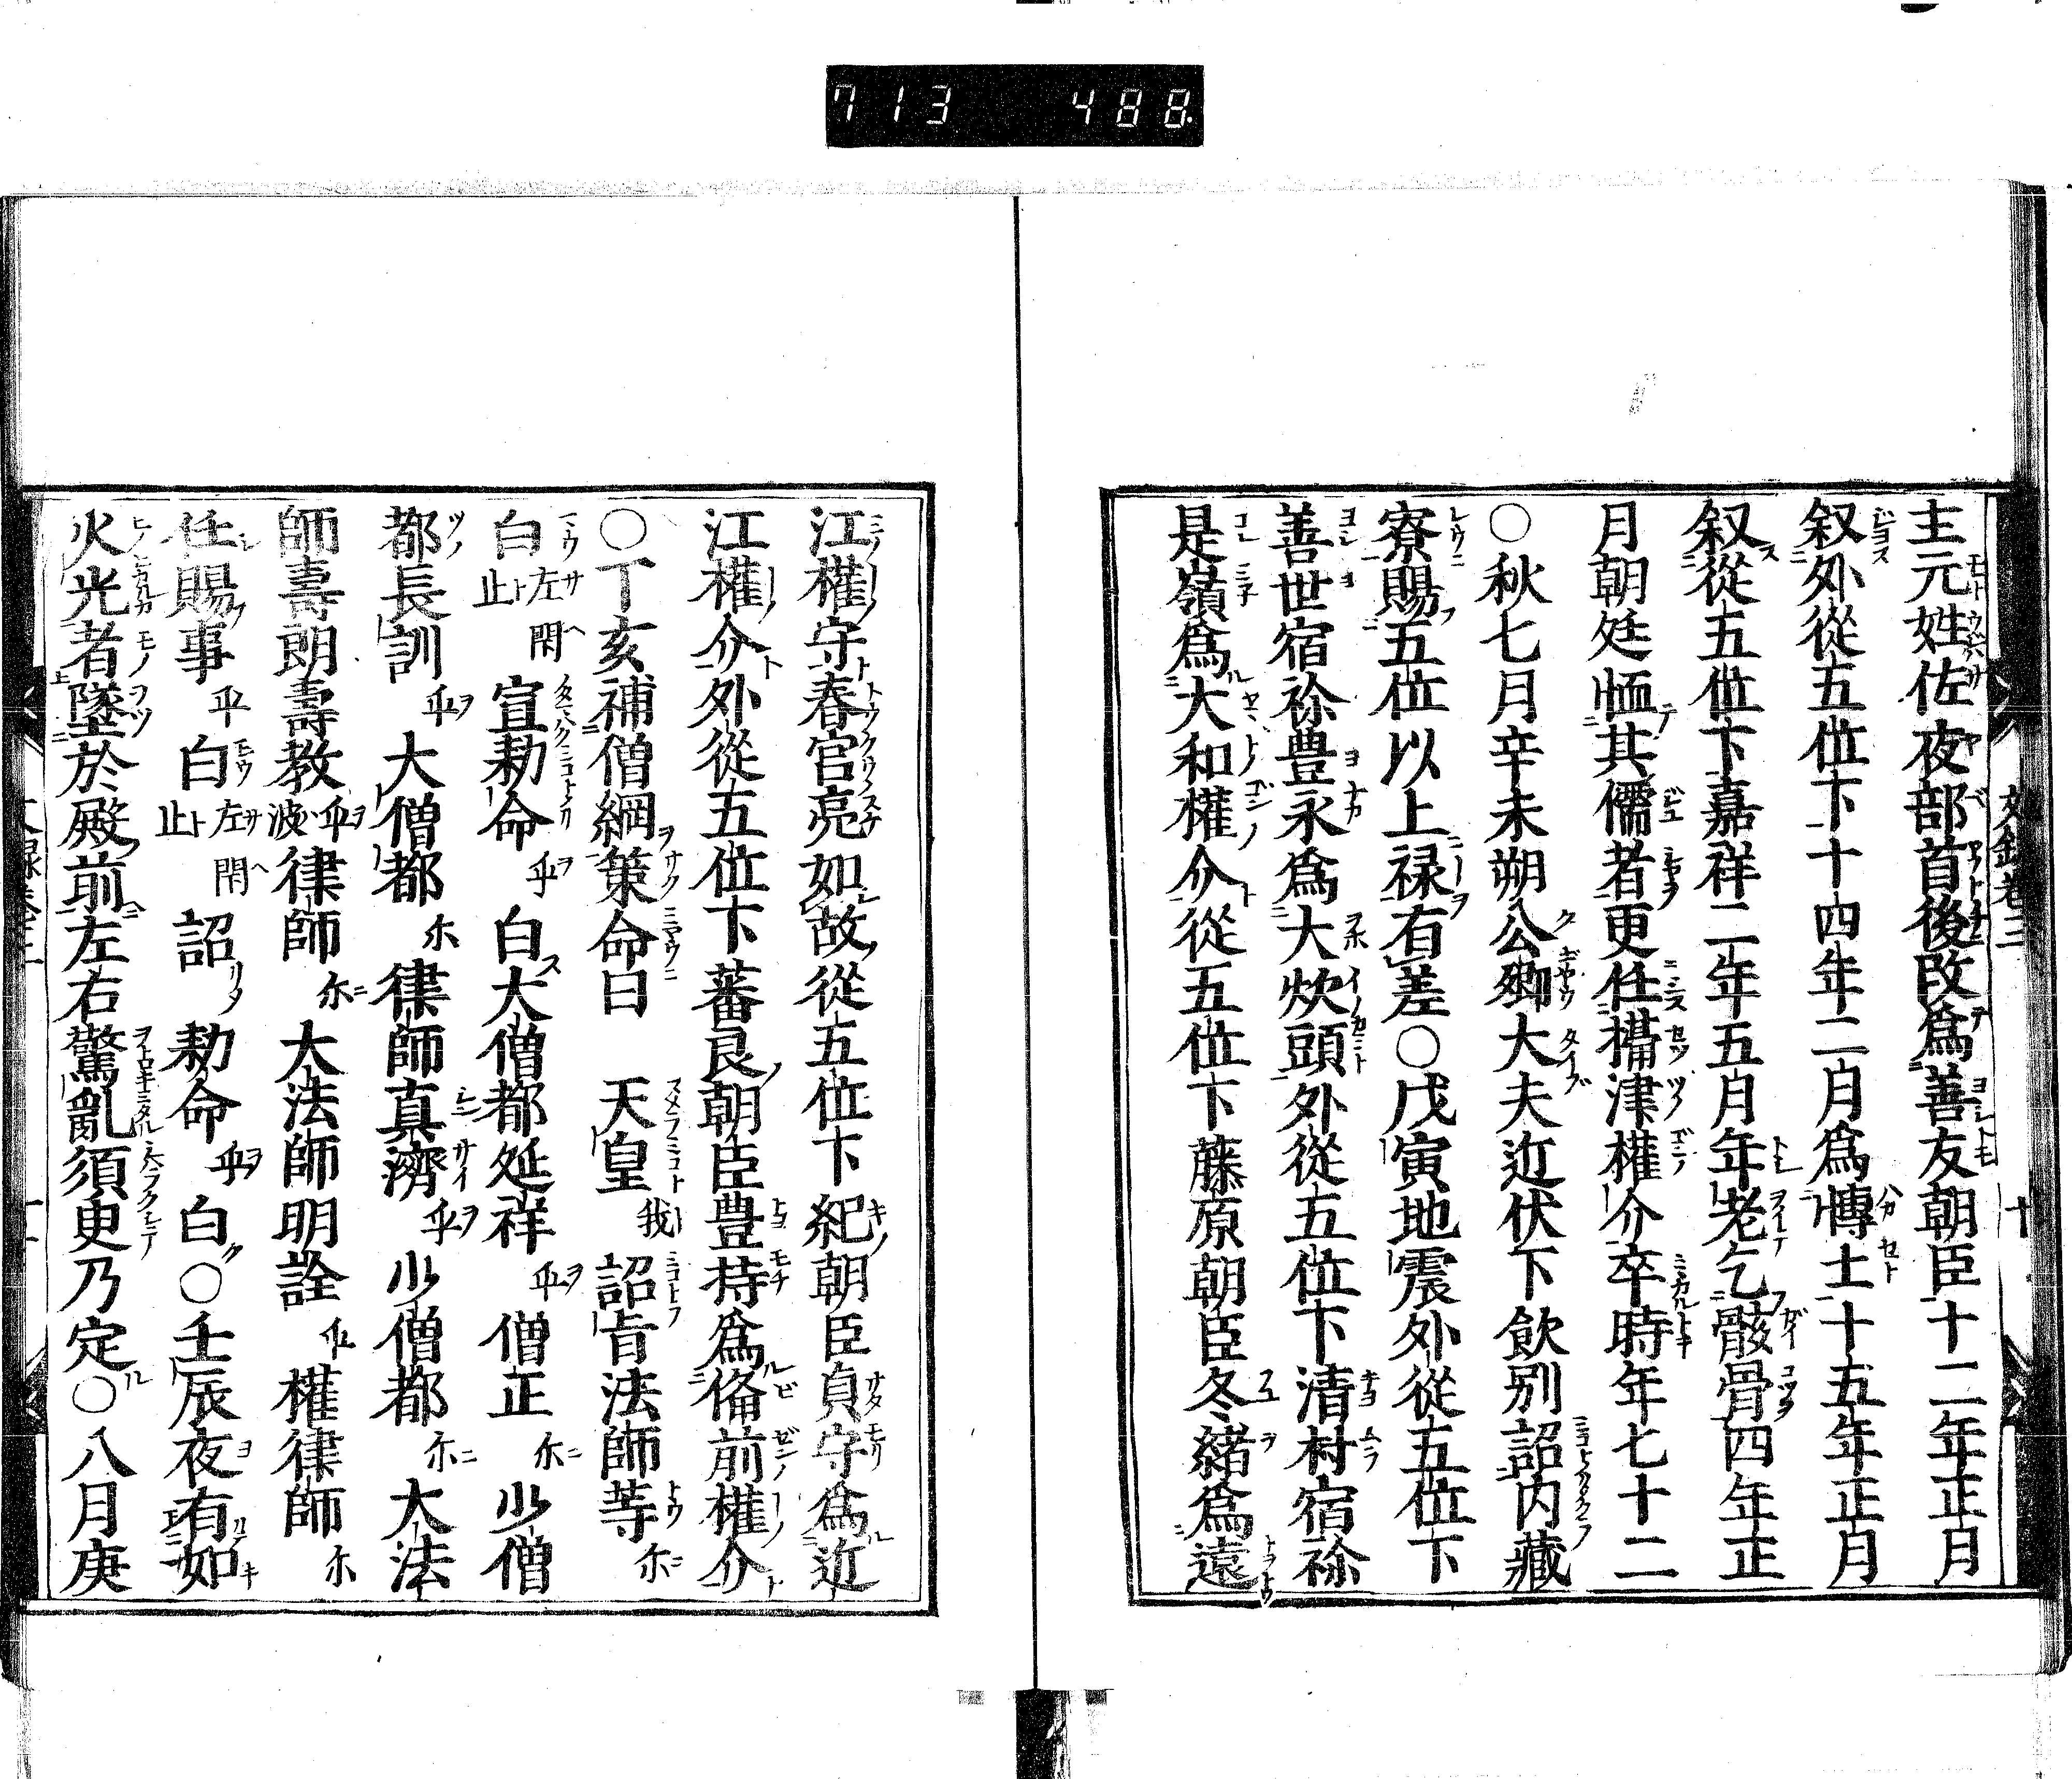 713 488
主元姓佐夜部首後改爲善友朝臣十二年正月
叙外從五位下十四年二月爲博士十五年正月
叙從五位下嘉祥二年五月年老乞骸骨四年正
月朝廷恤其儒者更任攝津權介卒時年七十二
○秋七月辛未朔公卿大夫近伏下飲別詔内藏
寮賜五位以上禄有差○戊寅地震外從五位下
善世宿祢豊永爲大炊頭外從五位下清村宿祢
是嶺爲大和權介從五位下藤原朝臣冬緒爲遠
江權守春宮亮如故從五位下紀朝臣貞守爲近
江權介外從五位下蕃良朝臣豊持爲俻前權介
○丁亥補僧綱策命曰天皇我詔旨法師等尓
白左閇止宣勅命乎白大僧都延祥乎僧正尓少僧
都長訓乎大僧都尓律師真濟乎少僧都尓大法
師壽朗壽教乎波律師尓大法師明詮乎權律師尓
任賜事乎白左閇止詔勅命乎白○壬辰夜有如
火光者墜於殿前左右驚亂須臾乃定○八月庚